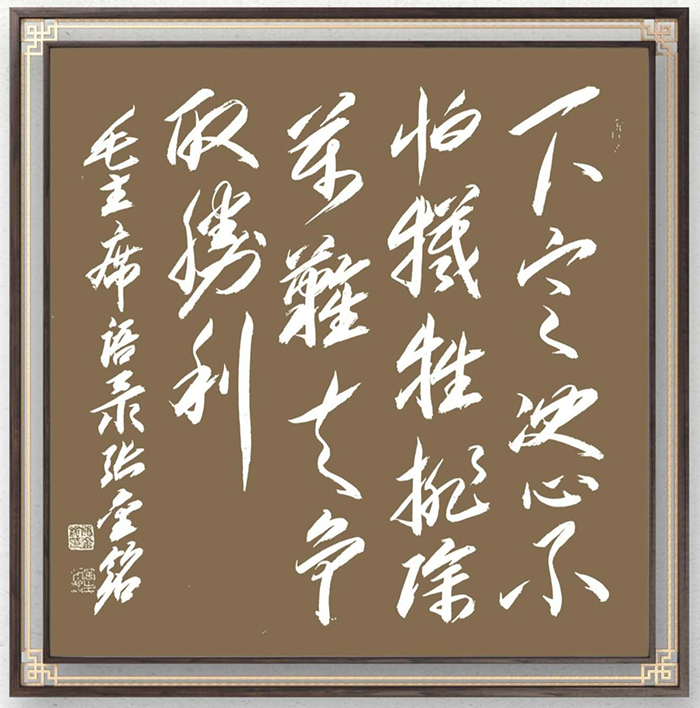 下定决心不
怕犧牲排除
萬難去争
取勝利
毛主席语录张金铭